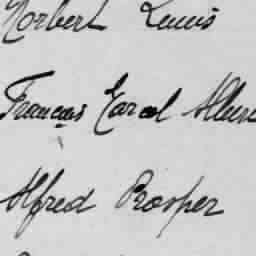 Norbert Louis
François Carool Albert
Alfred Prosper